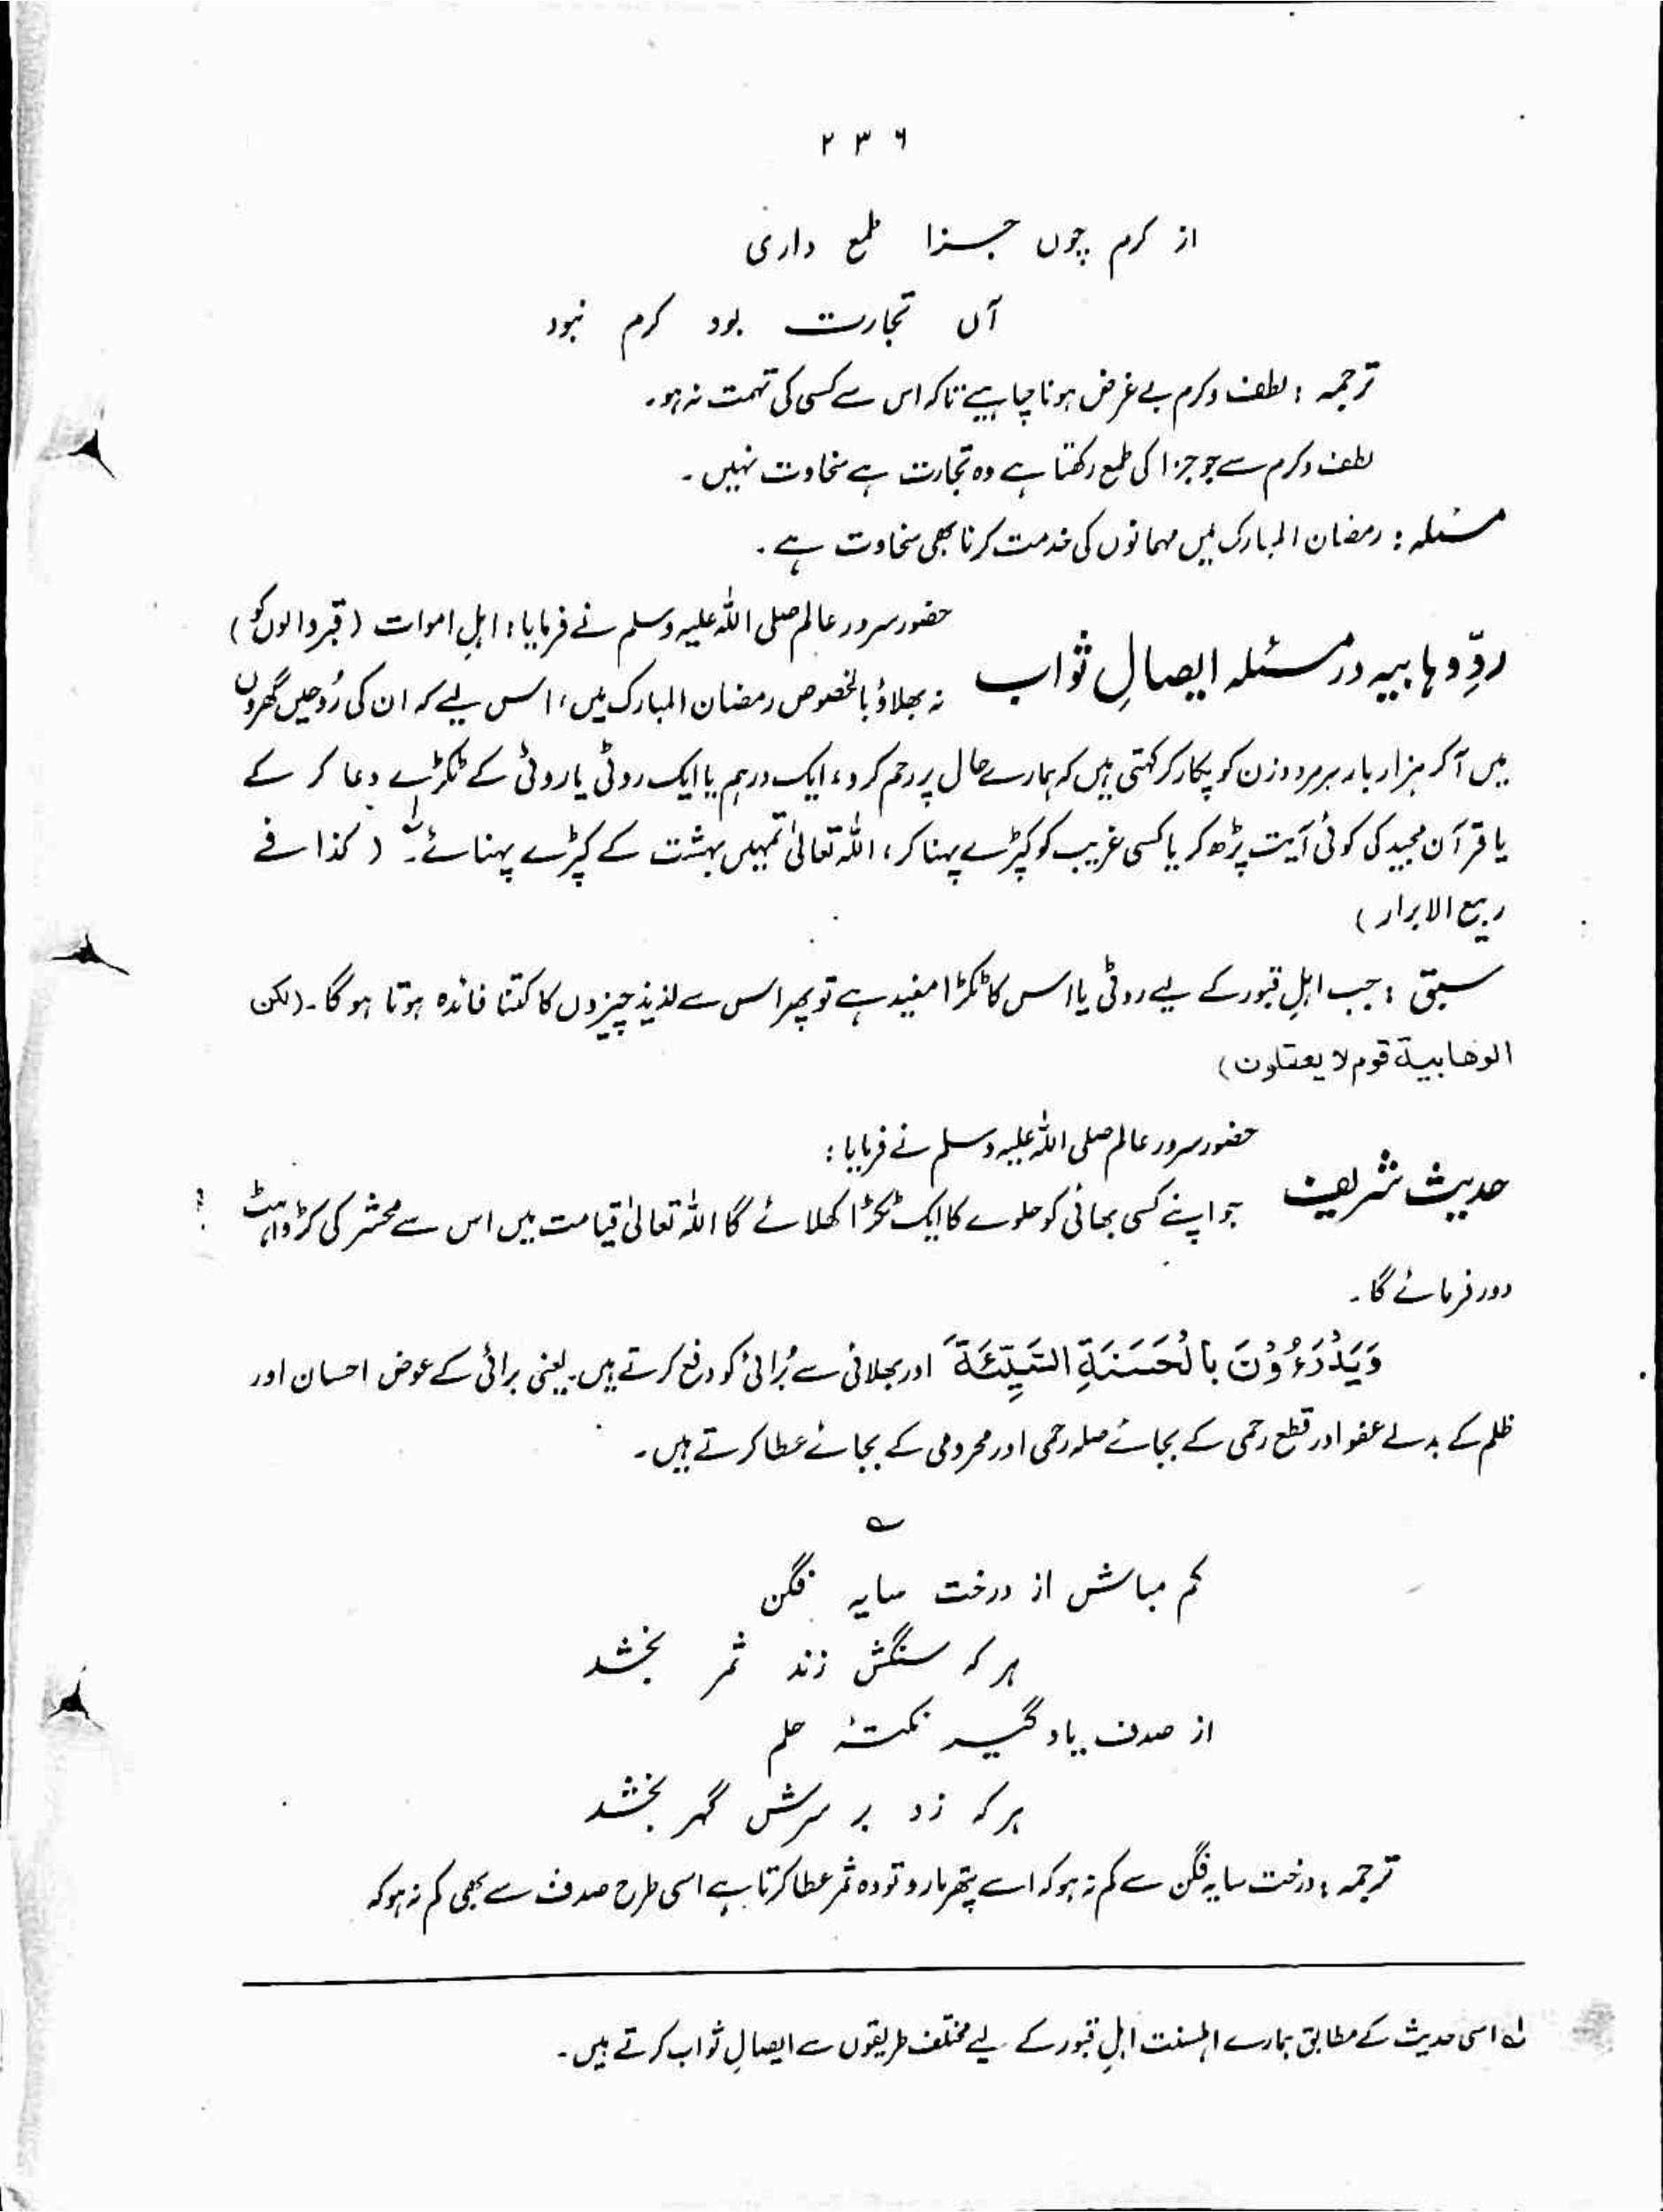 ۲۳۶
از کرم چوں جزا طمع داری
آں تجارت بود کرم نبود
ترجمہ : لطف و کرم بے غرض ہونا چاہیے تاکہ اس سے کسی کی تہمت نہ ہو۔
لطف و کرم سے جو جزا کی طمع رکھتا ہے وہ تجارت ہے سخاوت نہیں ۔
مسئلہ : رمضان المبارک میں مہمانوں کی خدمت کرنا بھی سخاوت ہے ۔
ردِّ وہابیہ در مسئلہ ایصالِ ثواب
حضور سرور عالم صلی اللہ علیہ وسلم نے فرمایا : اہلِ اموات ( قبر والوں کو )
نہ بھلاؤ بالخصوص رمضان المبارک میں ، اس لیے کہ ان کی رُوحیں گھروں
میں آکر ہزار بار ہر مرد و زن کو پکار کر کہتی ہیں کہ ہمارے حال پر رحم کرو ، ایک درہم یا ایک روٹی یا روٹی کے ٹکڑے دعا کر کے
یا قرآن مجید کی کوئی آیت پڑھ کر یا کسی غریب کو کپڑے پہنا کر ، اللہ تعالیٰ تمہیں بہشت کے کپڑے پہنائے ۔ لہ ( کذا فے
ربیع الابرار )
سبق : جب اہلِ قبور کے لیے روٹی یا اس کا ٹکڑا مفید ہے تو پھر اس سے لذیذ چیزوں کا کتنا فائدہ ہوتا ہوگا ۔ ( لکن
الوھابیۃ قوم لا یعقلون )
حدیث شریف
حضور سرور عالم صلی اللہ علیہ وسلم نے فرمایا :
جو اپنے کسی بھائی کو حلوے کا ایک ٹکڑا کھلائے گا اللہ تعالیٰ قیامت میں اس سے محشر کی کڑواہٹ
دور فرمائے گا ۔
وَیَدْرَءُوْنَ بِالْحَسَنَةِ السَّیِّئَةَ اور بھلائی سے بُرائی کو دفع کرتے ہیں۔ یعنی برائی کے عوض احسان اور
ظلم کے بدلے عفو اور قطع رحمی کے بجائے صلہ رحمی اور محرومی کے بجائے عطا کرتے ہیں ۔
؎
کم مباش از درخت سایہ فگن
ہر کہ سنگش زند ثمر بخشد
از صدف یاد گیر نکتۂ حلم
ہر کہ زد بر سرش گہر بخشد
ترجمہ : درخت سایہ فگن سے کم نہ ہو کہ اسے پتھر مارو تو وہ ثمر عطا کرتا ہے اسی طرح صدف سے بھی کم نہ ہو کہ
لہ اسی حدیث کے مطابق ہمارے اہلسنت اہلِ قبور کے لیے مختلف طریقوں سے ایصالِ ثواب کرتے ہیں ۔